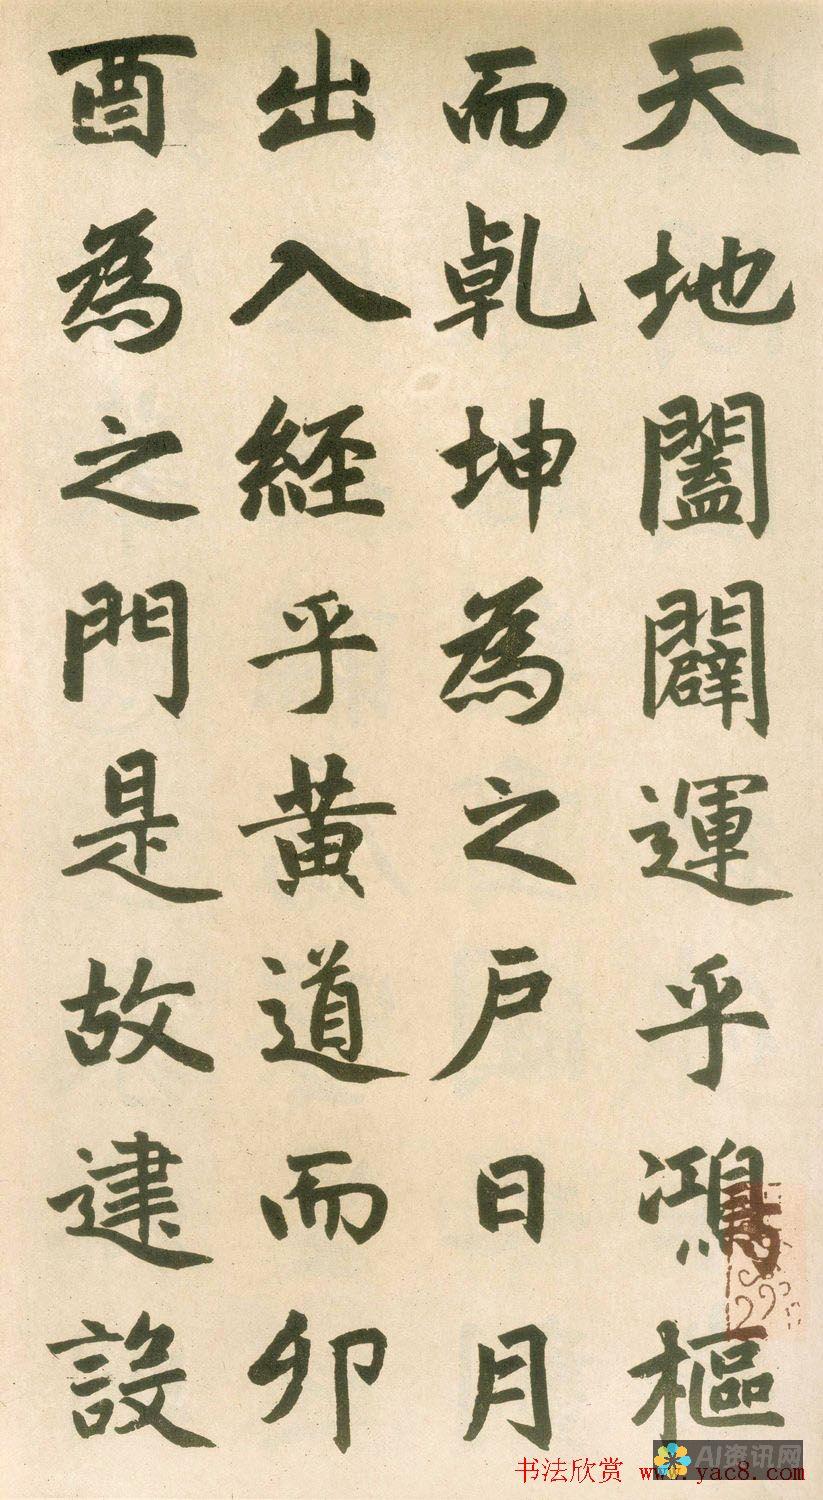 天地闔闢運乎鴻樞
而乹坤為之户日月
出入經乎黃道而卯
酉為之門是故建設
AI资讯网
书法欣赏 www.yac8.com